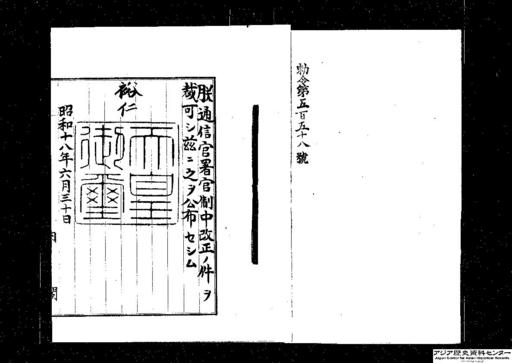 勅令第五百五十八號
朕通信官署官制中改正ノ件ヲ
裁可シ茲ニ之ヲ公布セシム
裕仁
天皇
御璽
昭和十八年六月三十日
内 閣
アジア歴史資料センター
Japan Center for Asian Historical Records